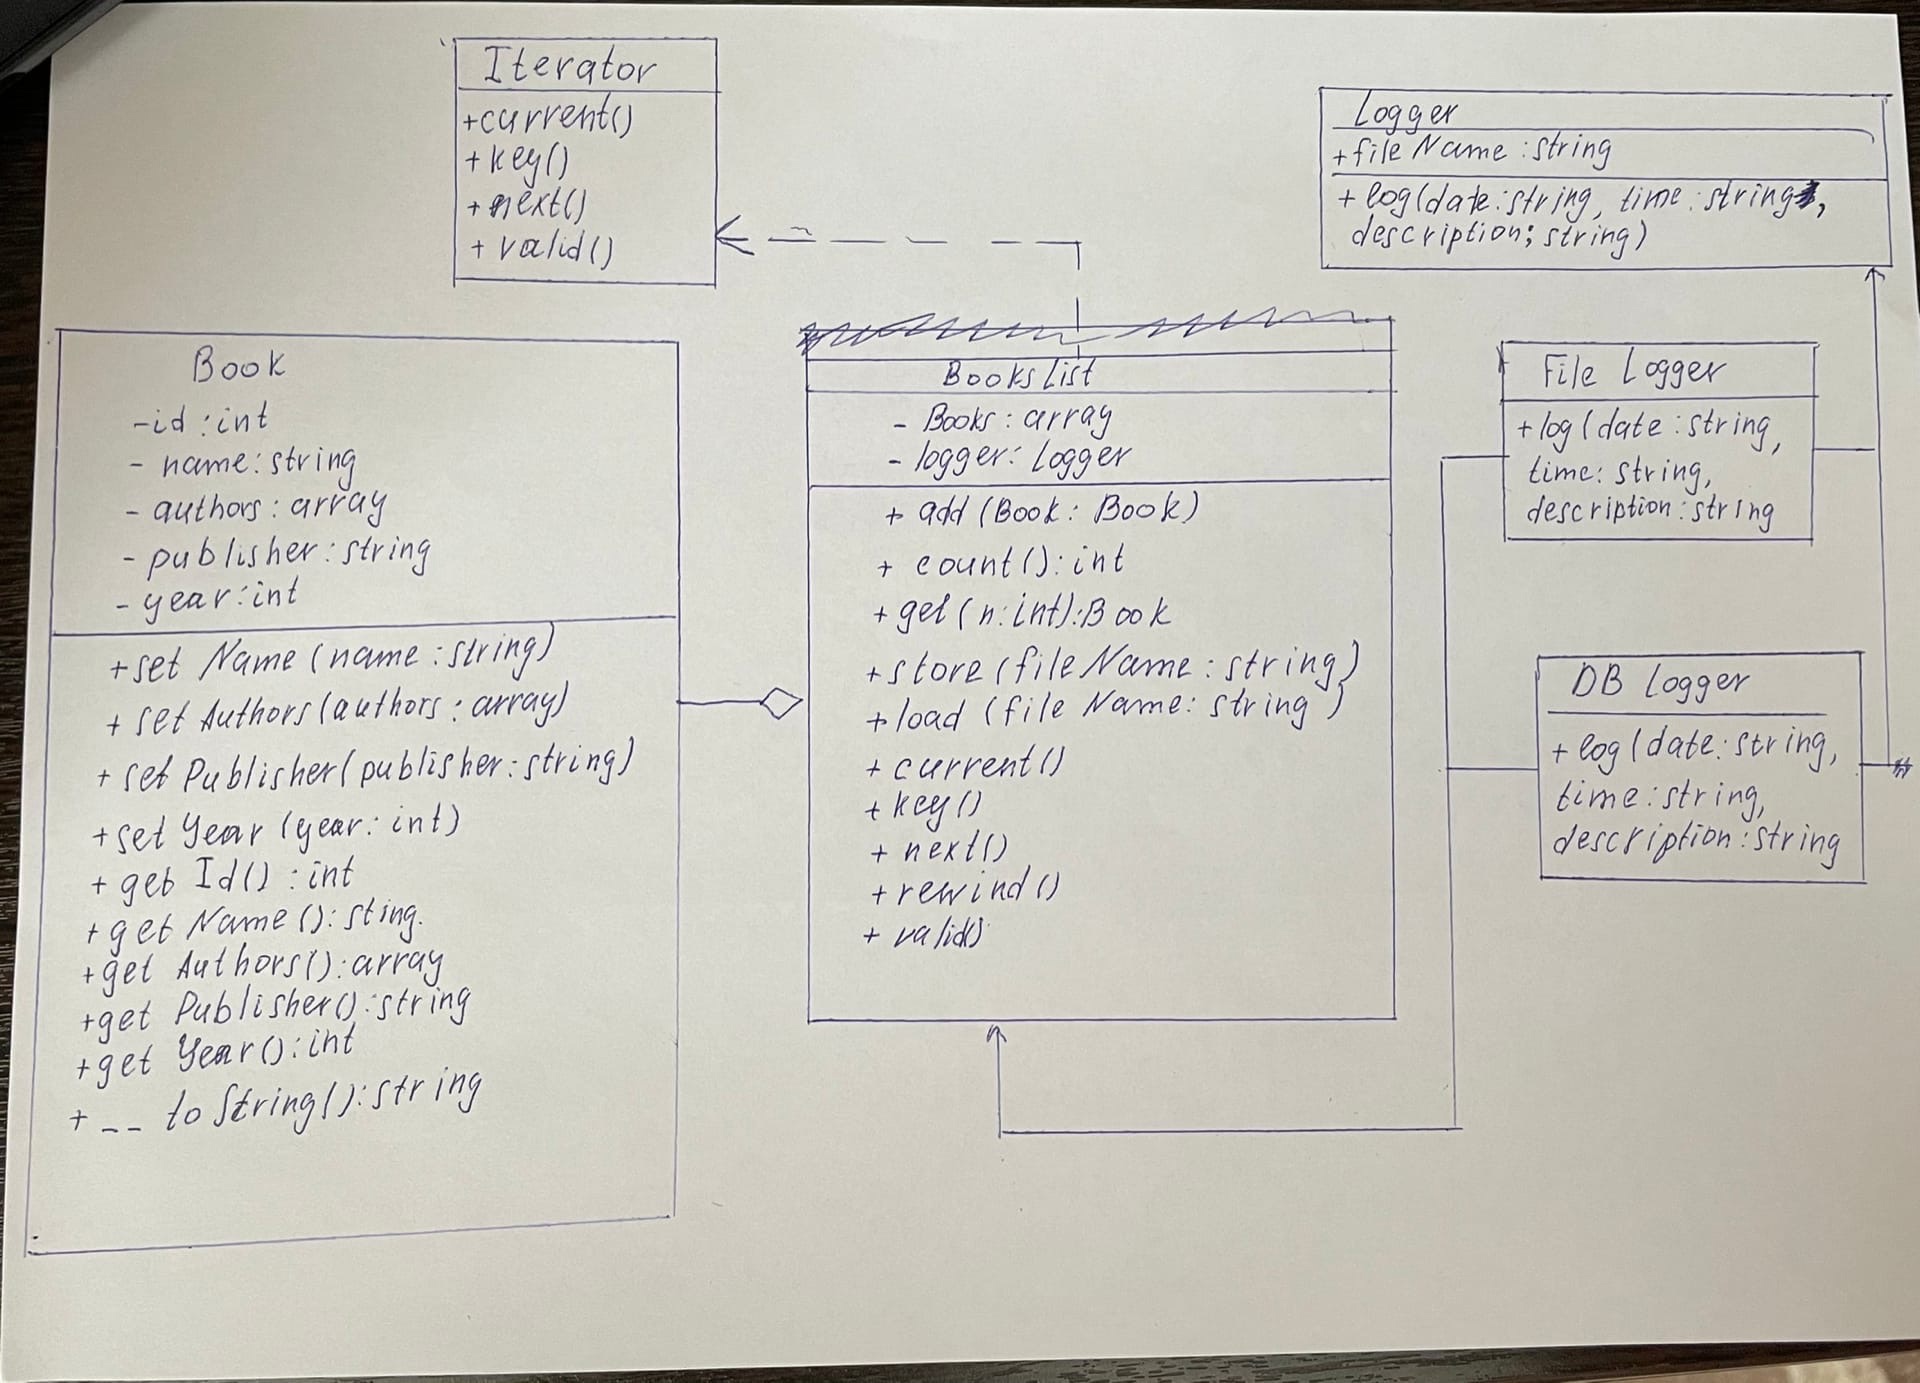 Iterator
+current()
+ key()
+ next()
+ valid()
Logger
+file Name : string
+ log(date:string, time:string,
description; string)
Book
-id : int
- name: string
- authors: array
- publisher: string
- year: int
+set Name (name : string)
+ set Authors (authors : array)
+ set Publisher (publisher : string)
+set Year (year: int)
+ get Id() : int
+ get Name (): sting.
+get Authors(): array
+get Publisher(): string
+get Year(): int
+ __ to String(): string
Books List
- Books: array
- logger: Logger
+ add (Book: Book)
+ count(): int
+ get (n: int): Book
+store (file Name : string)
+load (file Name: string )
+ current()
+ key()
+ next()
+ rewind()
+ valid()
File Logger
+log (date : string,
time: string,
description : string
DB Logger
+ log (date: string,
time : string,
description : string